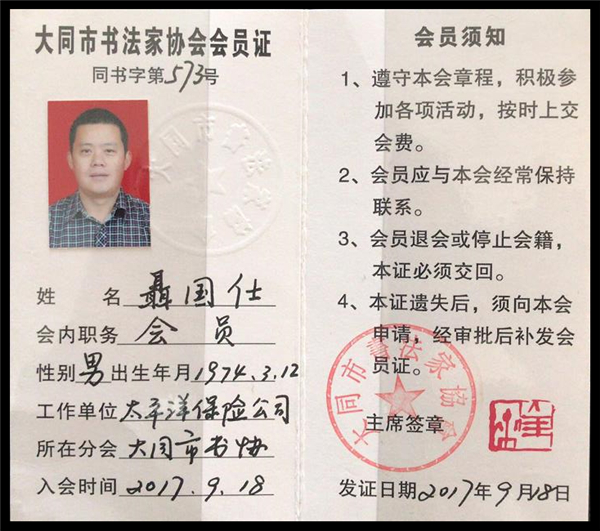 大同市书法家协会会员证
同书字第573号
大同市书法家协会
姓 名 聂国仕
会内职务 会员
性别 男 出生年月 1974.3.12
工作单位 太平洋保险公司
所在分会 大同市书协
入会时间 2017.9.18
会员须知
1、遵守本会章程，积极参
加各项活动，按时上交
会费。
2、会员应与本会经常保持
联系。
3、会员退会或停止会籍，
本证必须交回。
4、本证遗失后，须向本会
申请，经审批后补发会
员证。
大同市书法家协会
主席签章
发证日期 2017年9月18日